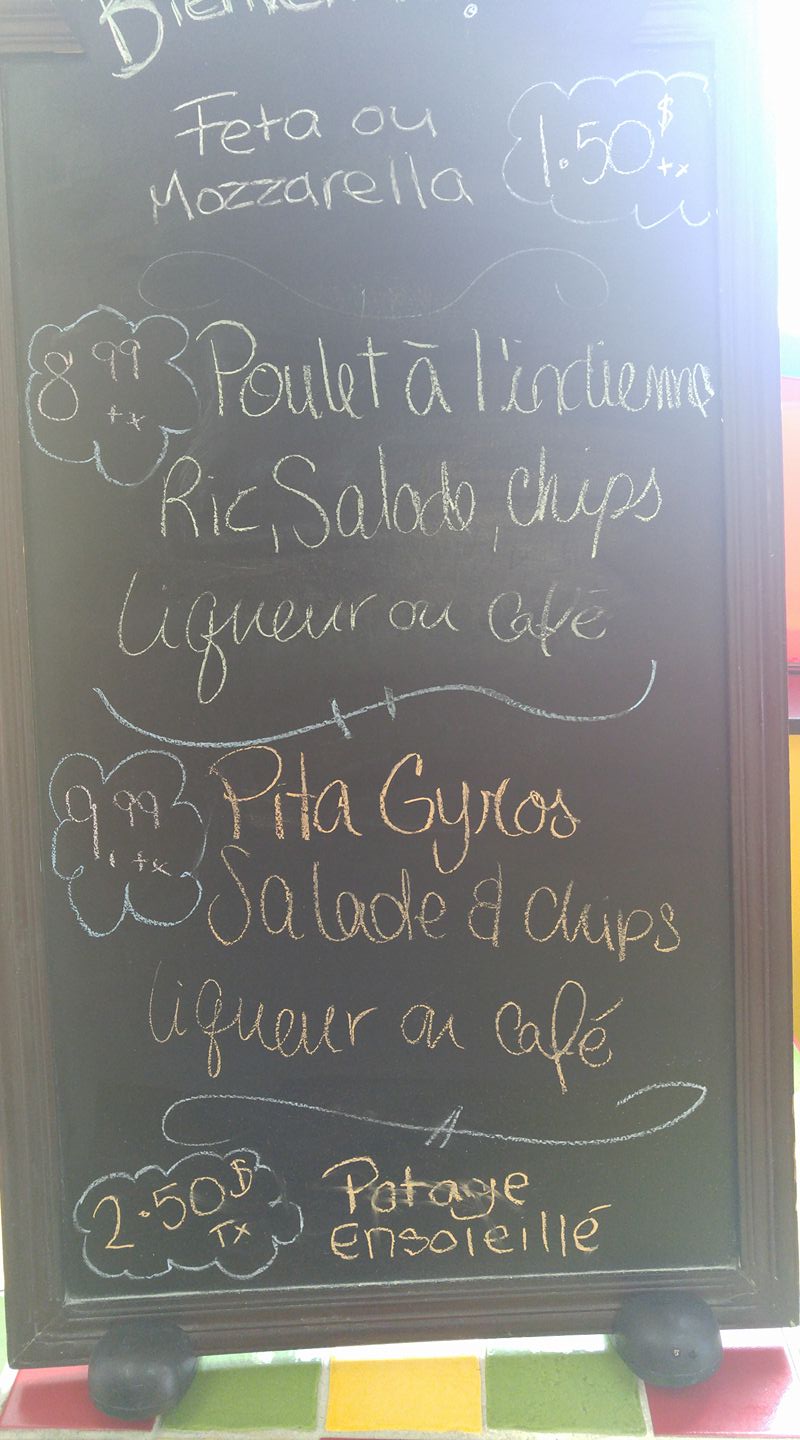 Feta ou
Mozzarella
1.50$
+x
8 99
+x
Poulet à l'indienne
Ric, Salade, chips
liqueur ou café
9.99
+x
Pita Gyros
Salade & chips
liqueur ou café
2.50$
Tx
Potage
ensoleillé